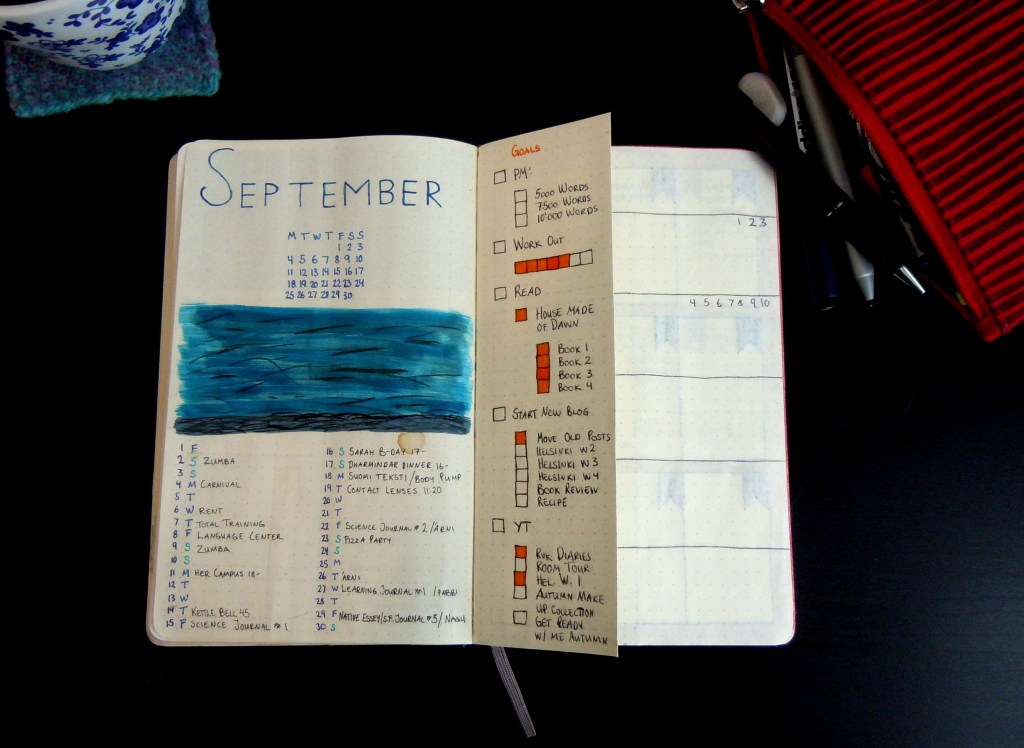 SEPTEMBER
M T W T F S S
1 2 3
4 5 6 7 8 9 10
11 12 13 14 15 16 17
18 19 20 21 22 23 24
25 26 27 28 29 30
1 F
2 S ZUMBA
3 S
4 M CARNIVAL
5 T
6 W RENT
7 T TOTAL TRAINING
8 F LANGUAGE CENTER
9 S ZUMBA
10 S
11 M HER CAMPUS 18-
12 T
13 W
14 T KETTLE BELL 45
15 F SCIENCE JOURNAL #1
16 S SARAH B-DAY 17-
17 S DHARMINDAR DINNER 16-
18 M SUOMI TEKSTI / BODY PUMP
19 T CONTACT LENSES 11:20
20 W
21 T
22 F SCIENCE JOURNAL #2 / ARNI
23 S PIZZA PARTY
24 S
25 M
26 T ARNI
27 W LEARNING JOURNAL #1 /
28 T
29 F NATIVE ESSAY/S.F. JOURNAL #5/
30 S
GOALS
PM:
5000 WORDS
7500 WORDS
10'000 WORDS
WORK OUT
READ
HOUSE MADE
OF DAWN
BOOK 1
BOOK 2
BOOK 3
BOOK 4
START NEW BLOG
MOVE OLD POSTS
HELSINKI W2
HELSINKI W3
HELSINKI W4
BOOK REVIEW
RECIPE
YT
RVK DIARIES
ROOM TOUR
HEL W. 1
AUTUMN MAKE
UP COLLECTION
GET READY
W/ ME AUTUMN
1 2 3
4 5 6 7 8 9 10